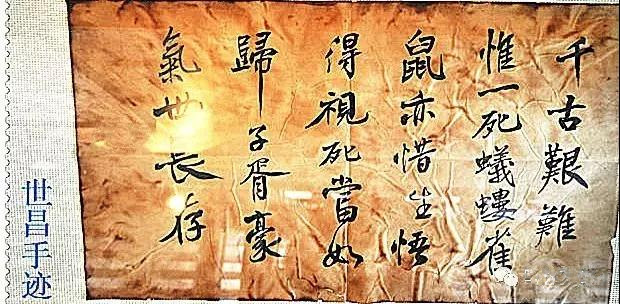 千古艱難
惟一死蟻螻雀
鼠亦惜生悟
得視死當如
歸子胥豪
氣世長存
世昌手迹